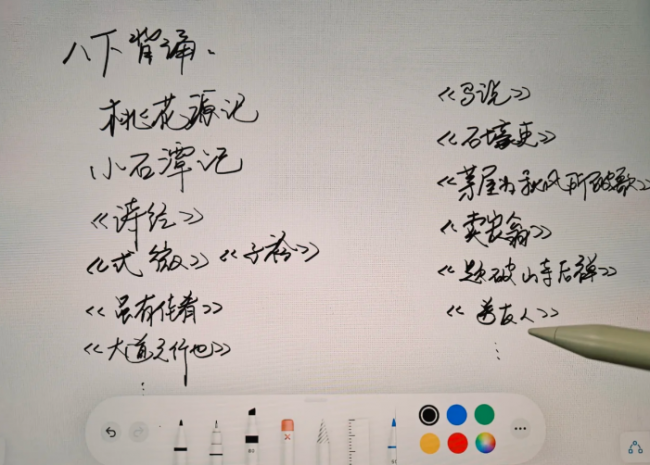 八下背诵.
桃花源记
小石潭记
《诗经》
《式微》《子衿》
《虽有佳肴》
《大道之行也》
⋮
《马说》
《石壕吏》
《茅屋为秋风所破歌》
《卖炭翁》
《题破山寺后禅》
《送友人》
⋮